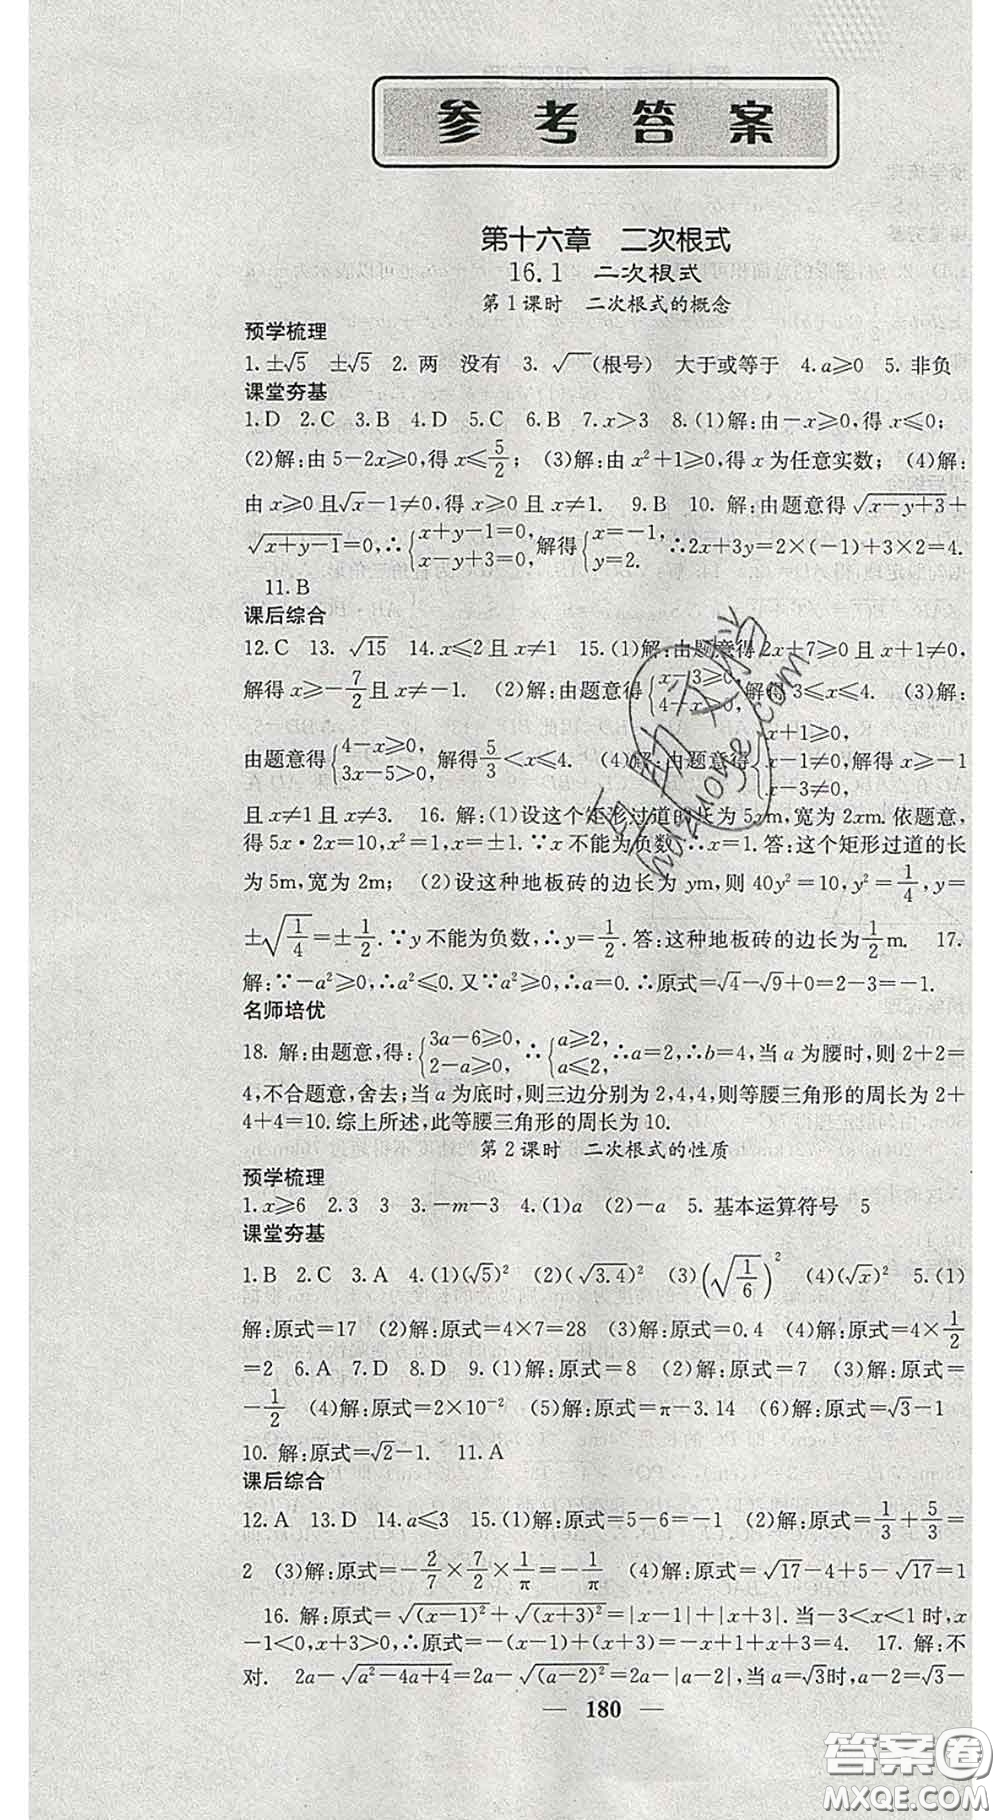 参考答案
第十六章 二次根式
16.1 二次根式
第1课时 二次根式的概念
预学梳理
1.±√5 ±√5 2.两 没有 3.√ (根号) 大于或等于 4.a≥0 5.非负
课堂夯基
1.D 2.C 3.B 4.D 5.C 6.B 7.x>3 8.(1)解:由-x≥0,得 x≤0;
(2)解:由 5-2x≥0,得 x≤5/2; (3)解:由 x²+1≥0,得 x 为任意实数; (4)解:
由 x≥0 且√x-1≠0,得 x≥0 且 x≠1. 9.B 10.解:由题意得√(x-y+3)+
√(x+y-1)=0,∴{x+y-1=0, x-y+3=0,解得{x=-1, y=2. ∴2x+3y=2×(-1)+3×2=4.
11.B
课后综合
12.C 13.√15 14.x≤2 且 x≠1 15.(1)解:由题意得 2x+7≥0 且 x+1≠0,
解得 x≥-7/2且 x≠-1. (2)解:由题意得{x-3≥0, 4-x≥0,解得 3≤x≤4. (3)解:
由题意得{4-x≥0, 3x-5>0,解得5/3<x≤4. (4)解:由题意得{x+1≥0, x-1≠0, x-3≠0,解得 x≥-1
且 x≠1 且 x≠3. 16.解:(1)设这个矩形过道的长为 5xm,宽为 2xm.依题意,
得 5x·2x=10,x²=1,x=±1.∵x 不能为负数,∴x=1.答:这个矩形过道的长
为 5m,宽为 2m; (2)设这种地板砖的边长为 ym,则 40y²=10,y²=1/4,y=
±√(1/4)=±1/2.∵y 不能为负数,∴y=1/2.答:这种地板砖的边长为1/2m. 17.
解:∵-a²≥0,∴a²≤0.又∵a²≥0,∴a=0.∴原式=√4-√9+0=2-3=-1.
名师培优
18.解:由题意,得:{3a-6≥0, 2-a≥0, ∴{a≥2, a≤2, ∴a=2,∴b=4,当 a 为腰时,则 2+2=
4,不合题意,舍去;当 a 为底时,则三边分别为 2,4,4,则等腰三角形的周长为 2+
4+4=10.综上所述,此等腰三角形的周长为 10.
第2课时 二次根式的性质
预学梳理
1.x≥6 2.3 3 3.-m-3 4.(1)a (2)-a 5.基本运算符号 5
课堂夯基
1.B 2.C 3.A 4.(1)(√5)² (2)(√3.4)² (3)(√(1/6))² (4)(√x)² 5.(1)
解:原式=17 (2)解:原式=4×7=28 (3)解:原式=0.4 (4)解:原式=4×1/2
=2 6.A 7.D 8.D 9.(1)解:原式=8 (2)解:原式=7 (3)解:原式=
-1/2 (4)解:原式=2×10⁻² (5)解:原式=π-3.14 (6)解:原式=√3-1
10.解:原式=√2-1. 11.A
课后综合
12.A 13.D 14.a≤3 15.(1)解:原式=5-6=-1 (2)解:原式=1/3+5/3=
2 (3)解:原式=-2/7×7/2×1/π=-1/π (4)解:原式=√17-4+5-√17=1
16.解:原式=√((x-1)²)+√((x+3)²)=|x-1|+|x+3|.当-3<x<1 时,x
-1<0,x+3>0,∴原式=-(x-1)+(x+3)=-x+1+x+3=4. 17.解:不
对. 2a-√(a²-4a+4)=2a-√((a-2)²)=2a-|a-2|,当 a=√3时,a-2=√3-
— 180 —
答案圈
MXQE.COM